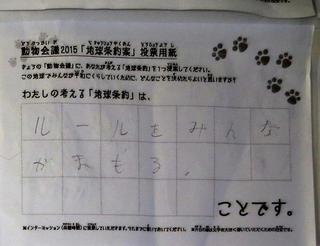 動物会議2015「地球条約案」投票用紙
きょうの「動物会議」に、あなたが考える「地球条約」を1つ提案してください。
この地球でみんなが平和にくらしていくために、どんなことを決めたらよいと思いますか?
わたしの考える「地球条約」は、
ルールをみんな
がまもる。
ことです。